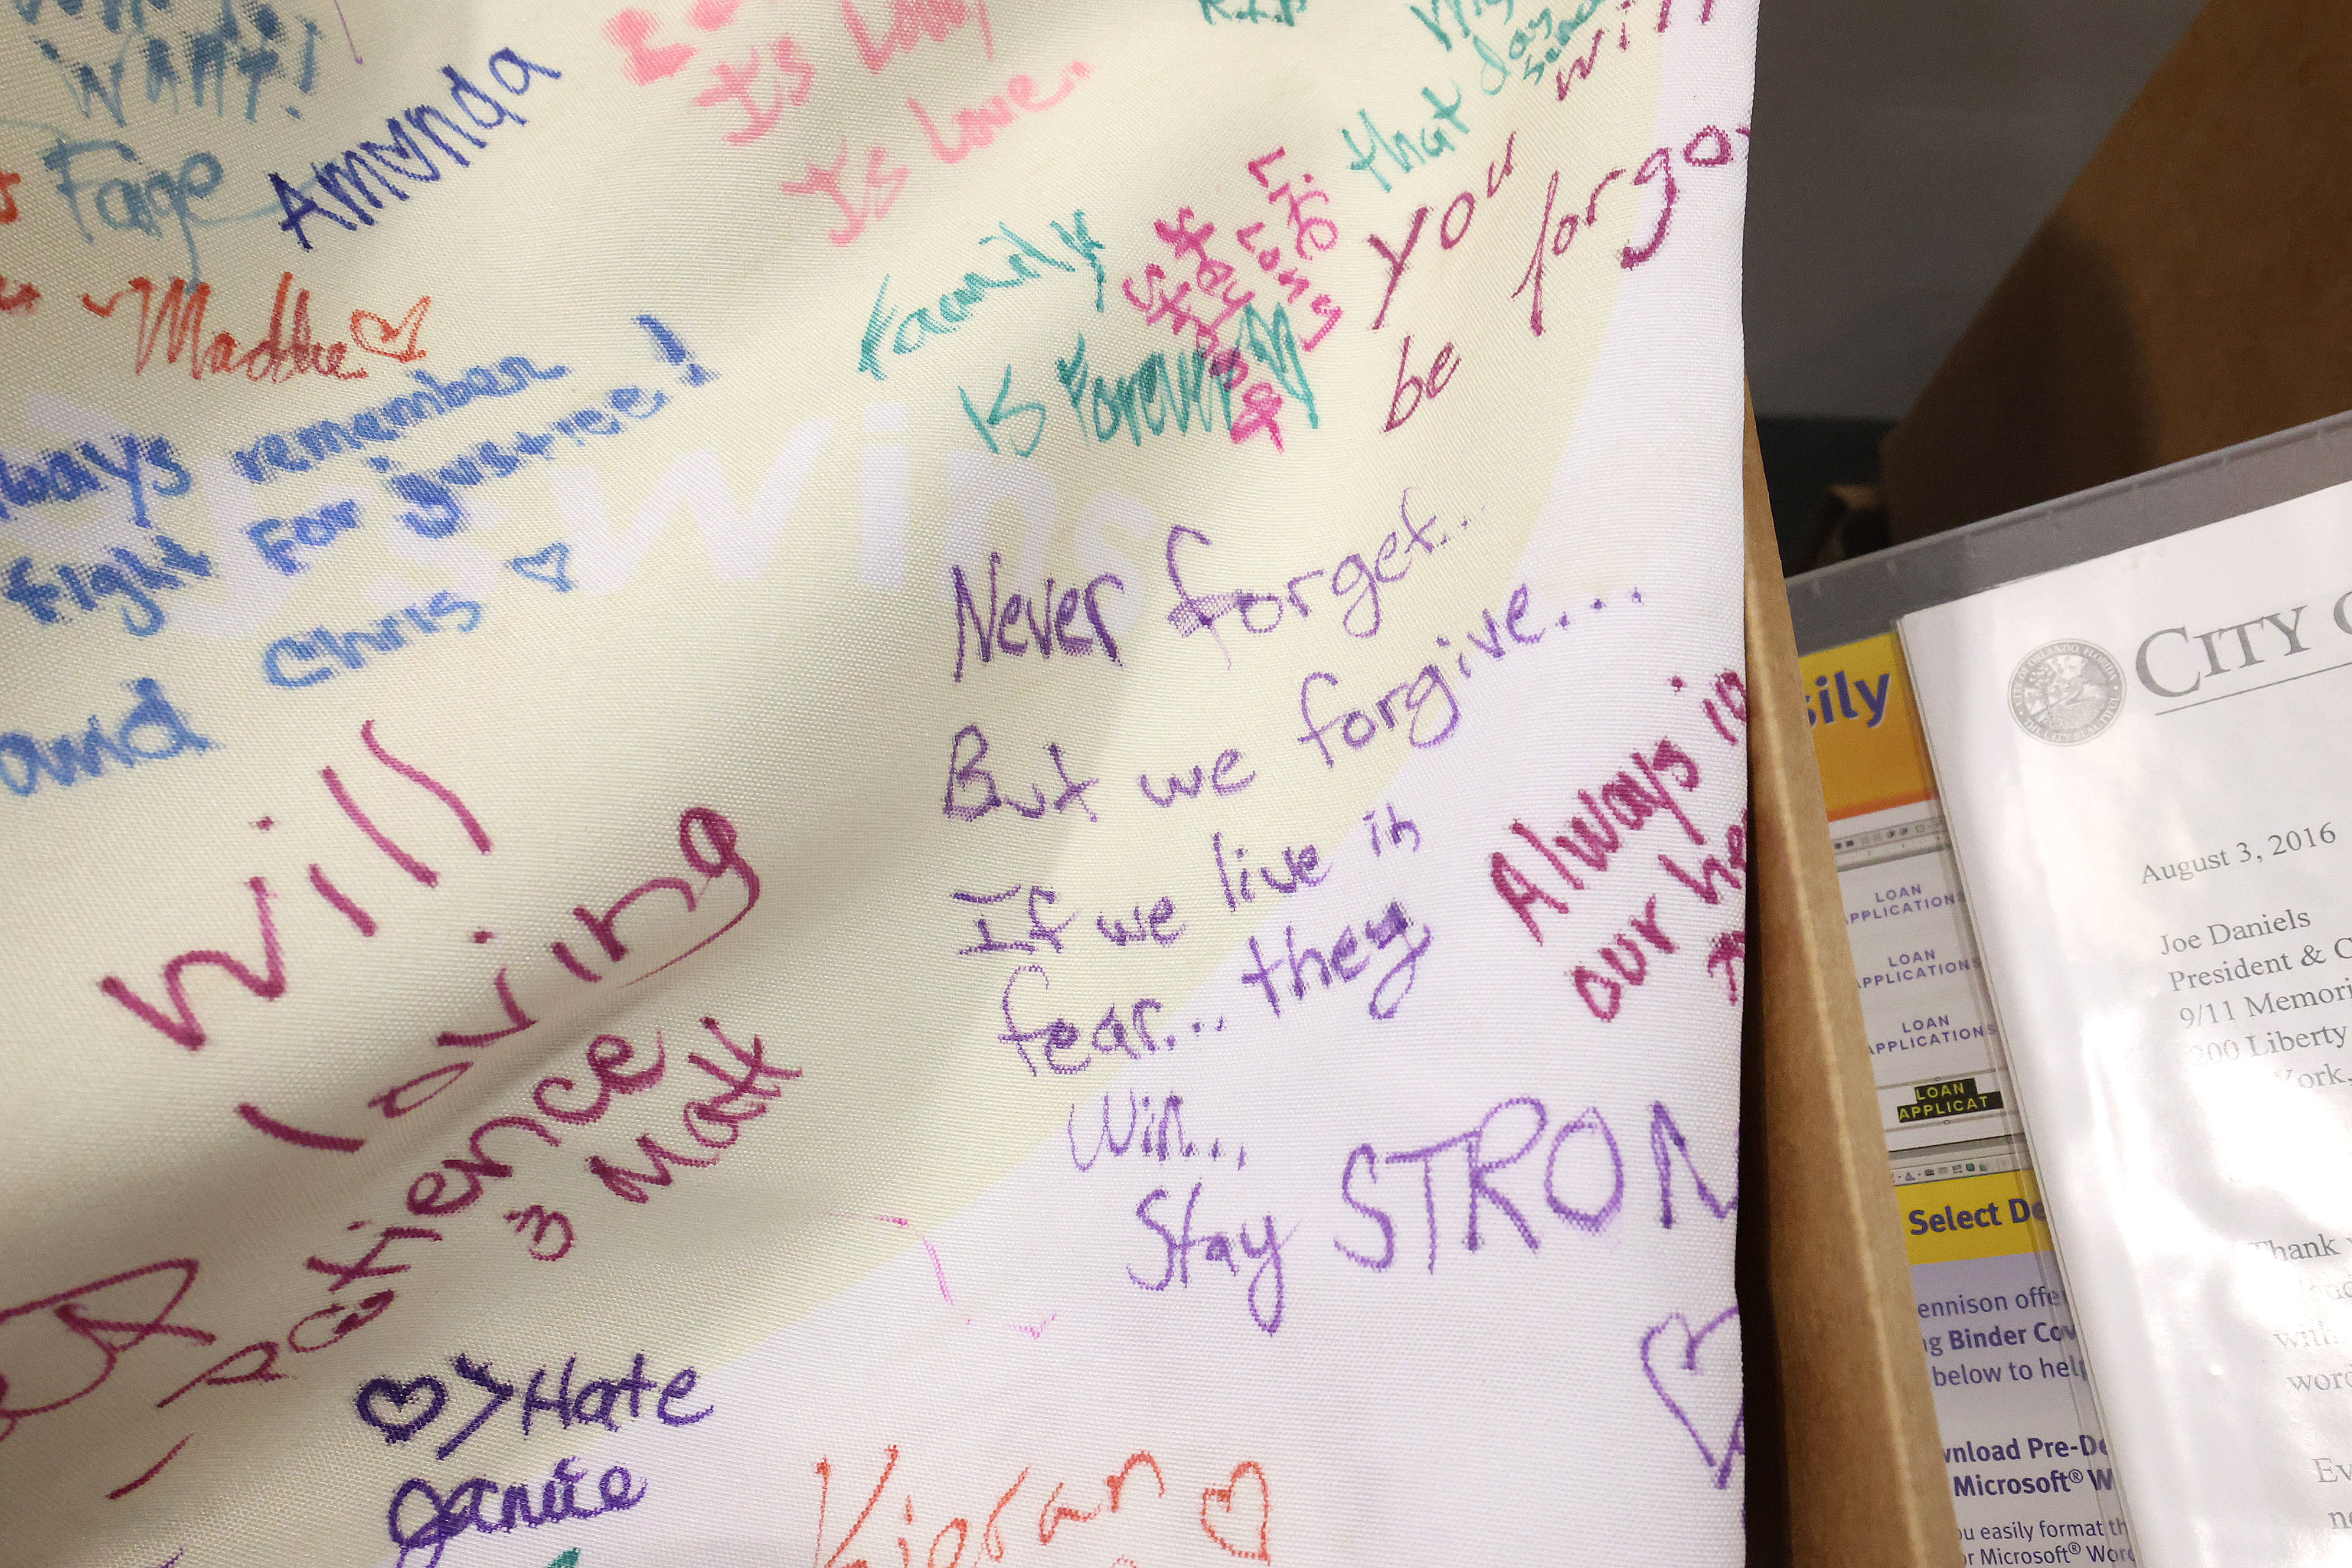 WANT!
Faye
Amanda
Is Love
Is Love.
R.I.P
that day
will
you
be forgo
Life
Long
Stay
Strong
Family
is Forever
Maddie
remember
fight for justice!
and Chris
wins
Never forget...
But we forgive...
If we live in
fear... they
Win...
Stay STRON
Always in
our he
will
loving
patience
Matt
> Hate
Janice
Kieran
sily
LOAN
APPLICATIONS
LOAN
APPLICATIONS
LOAN
APPLICATIONS
LOAN
APPLICAT
Select De
ennison offe
ng Binder Cov
below to help
wnload Pre-De
Microsoft® W
ou easily format th
or Microsoft® Word
CITY O
August 3, 2016
Joe Daniels
President & C
9/11 Memori
200 Liberty
York,
Thank
with
word
Ev